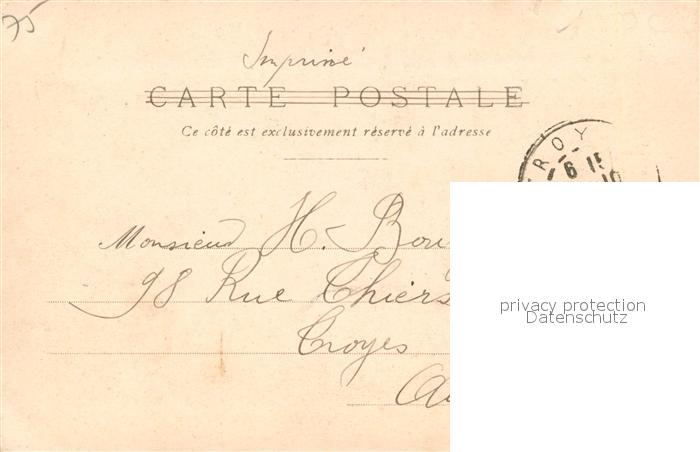 75
Imprimé
CARTE POSTALE
Ce côté est exclusivement réservé à l'adresse
ROY
6 15
Monsieur H. Bou
98 Rue Thiers
Troyes
privacy protection
Datenschutz